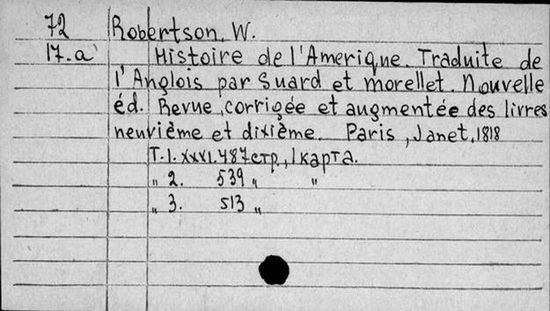 72 Robertson, W.
17.a Histoire de l'Amerique. Traduite de
l'Anglois par Suard et morellet. Nouvelle
éd. Revue, corrigée et augmentée des livres
neuvième et dixième. Paris, Janet, 1818
T.1. XXXI. 487 стр., 1 карта.
„ 2. 539 „ „
„ 3. 513 „